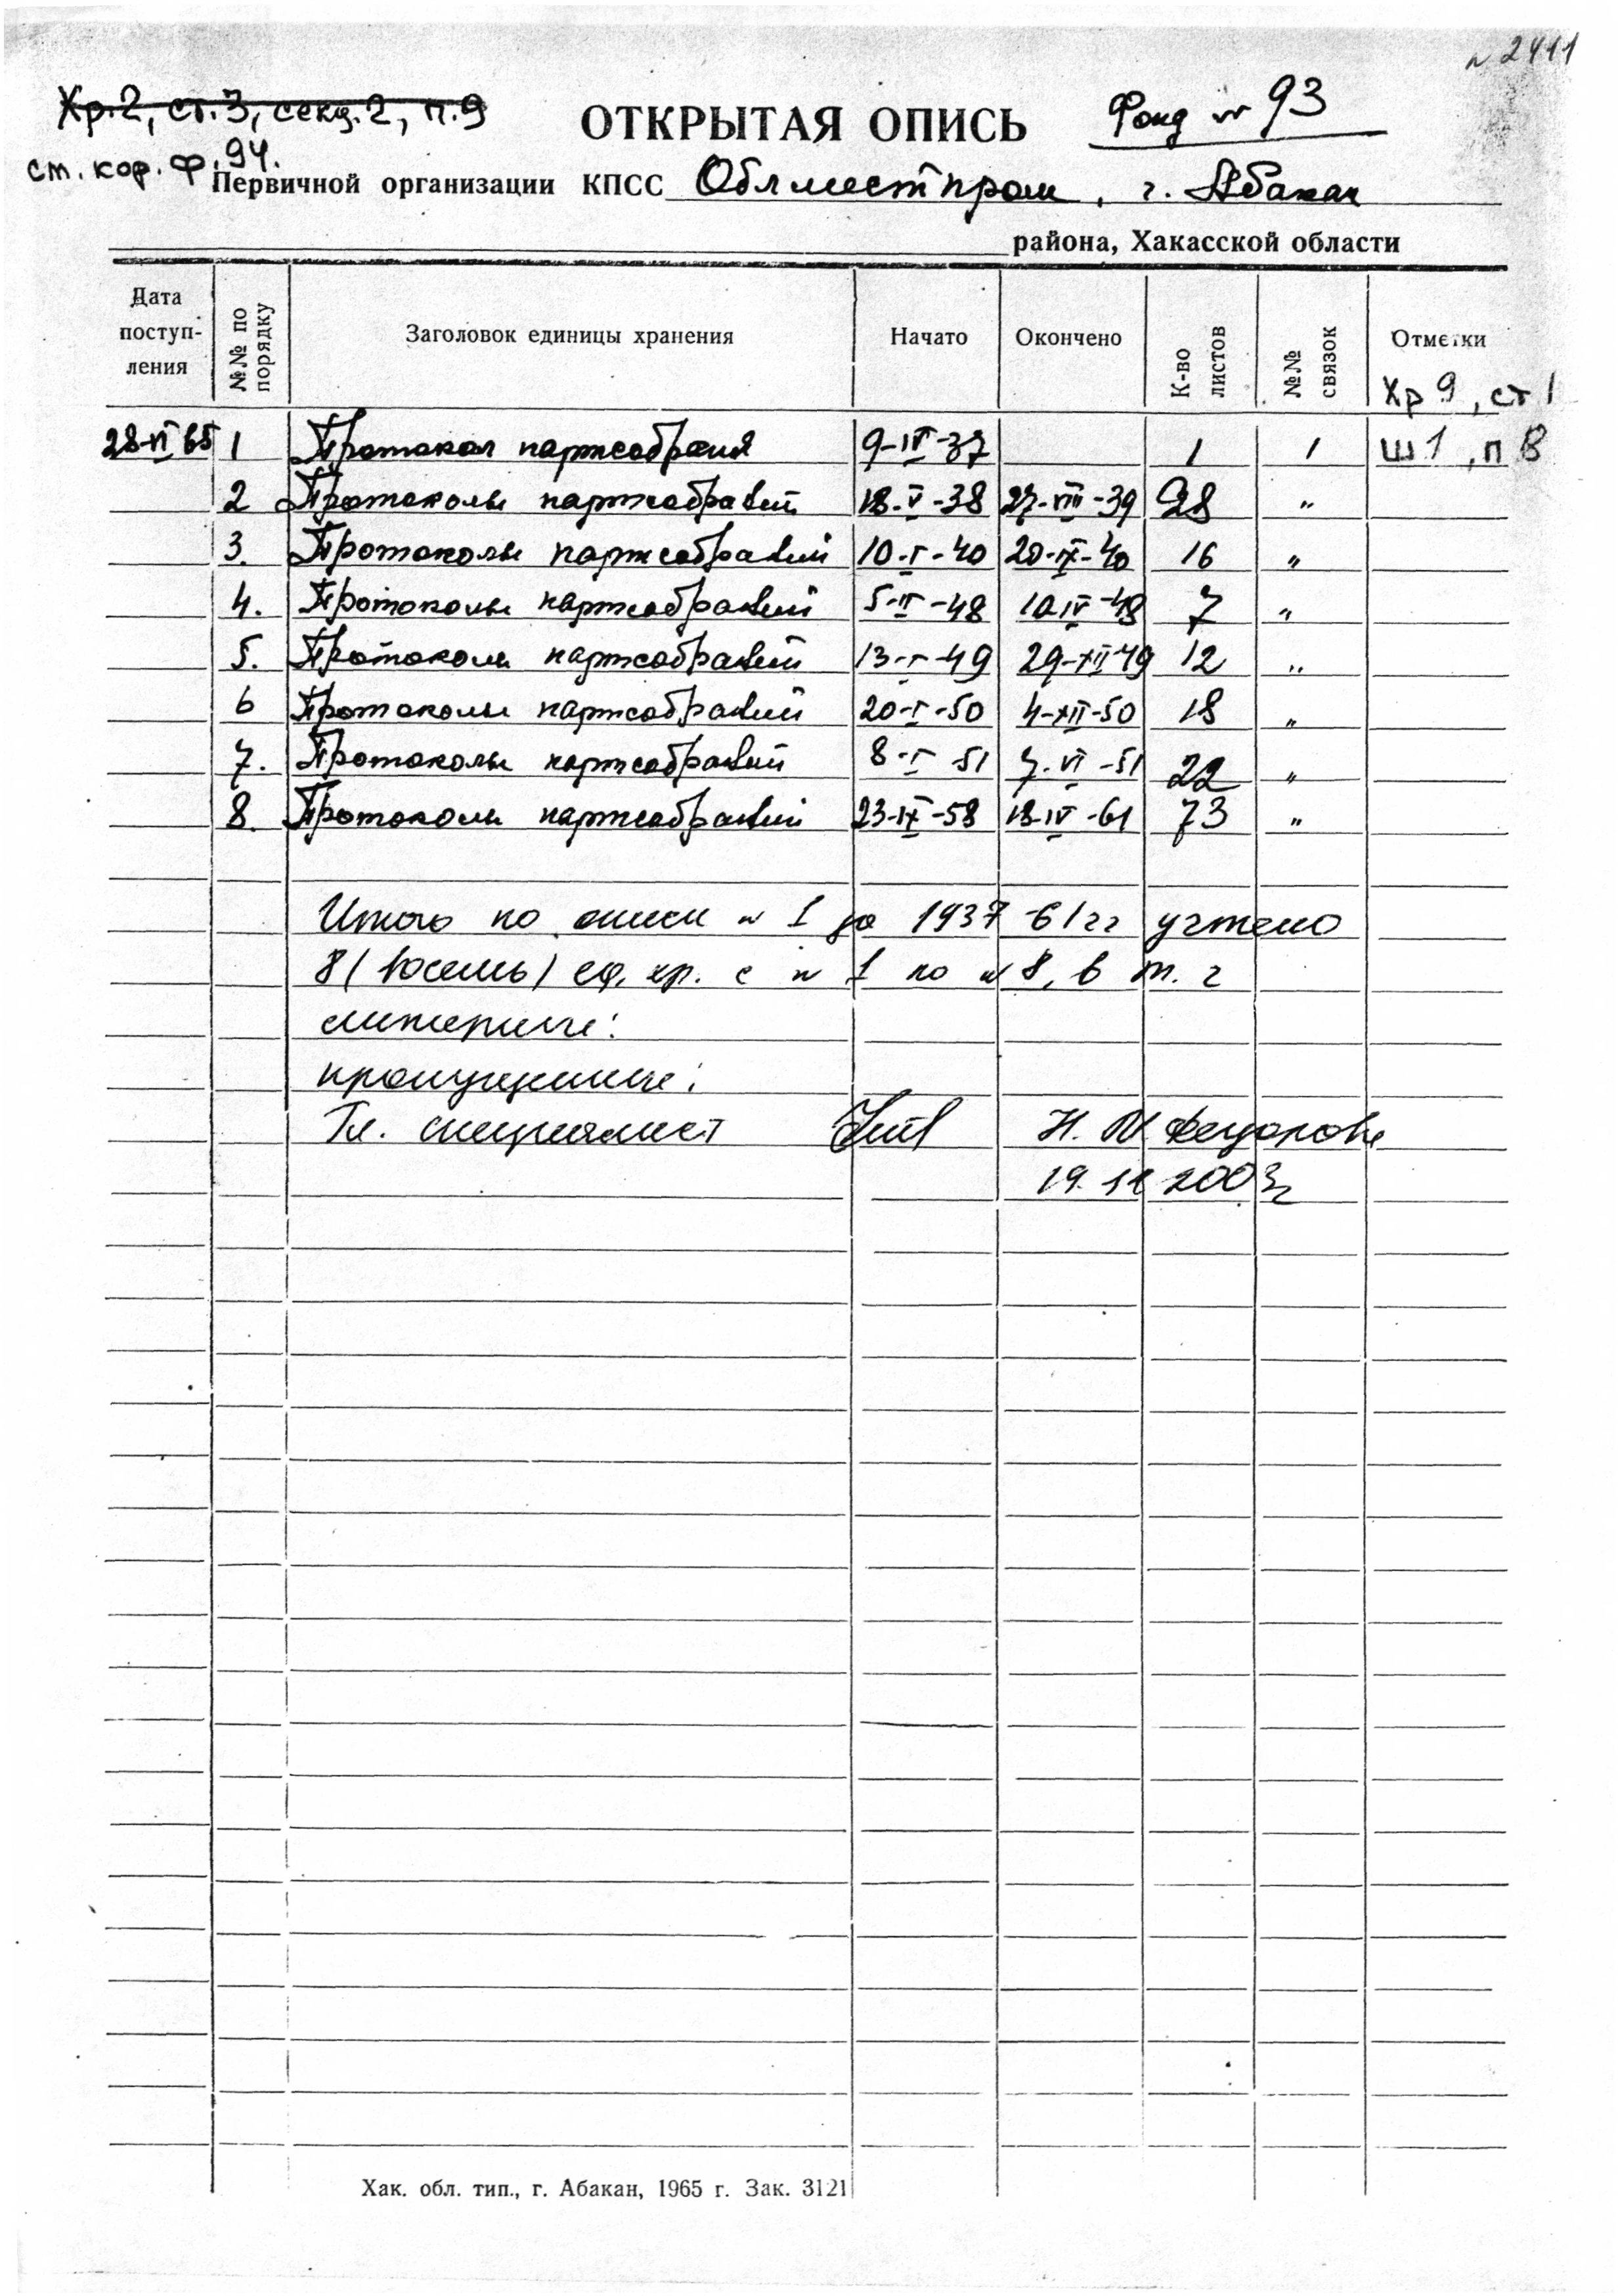 № 2411
Хр.2, ст.3, секц.2, п.9
ОТКРЫТАЯ ОПИСЬ Фонд № 93
ст. кор. ф. 94.
Первичной организации КПСС Облместпром, г. Абакан
района, Хакасской области
Дата поступ- ления №№ по порядку Заголовок единицы хранения Начато Окончено К-во листов №№ связок Отметки
Хр 9, ст 1
28-VI 65 1 Протокол партсобрания 9-IV-37 1 1 Ш 1, п 8
2 Протоколы партсобраний 18-V-38 27-VIII-39 28 "
3. Протоколы партсобраний 10-I-40 20-IX-40 16 "
4. Протоколы партсобраний 5-II-48 10 IV-48 7 "
5. Протоколы партсобраний 13-I-49 29-XII 49 12 "
6 Протоколы партсобраний 20-I-50 4-XII-50 18 "
7. Протоколы партсобраний 8-I-51 7-VI-51 22 "
8. Протоколы партсобраний 23-IX-58 18-IV-61 73 "
Итого по описи № 1 за 1937-61 гг учтено
8 (восемь) ед. хр. с № 1 по № 8, в т. ч
литерные:
пропущенные:
Гл. специалист Н. М Федорова
19. 11 2003г
Хак. обл. тип., г. Абакан, 1965 г. Зак. 3121